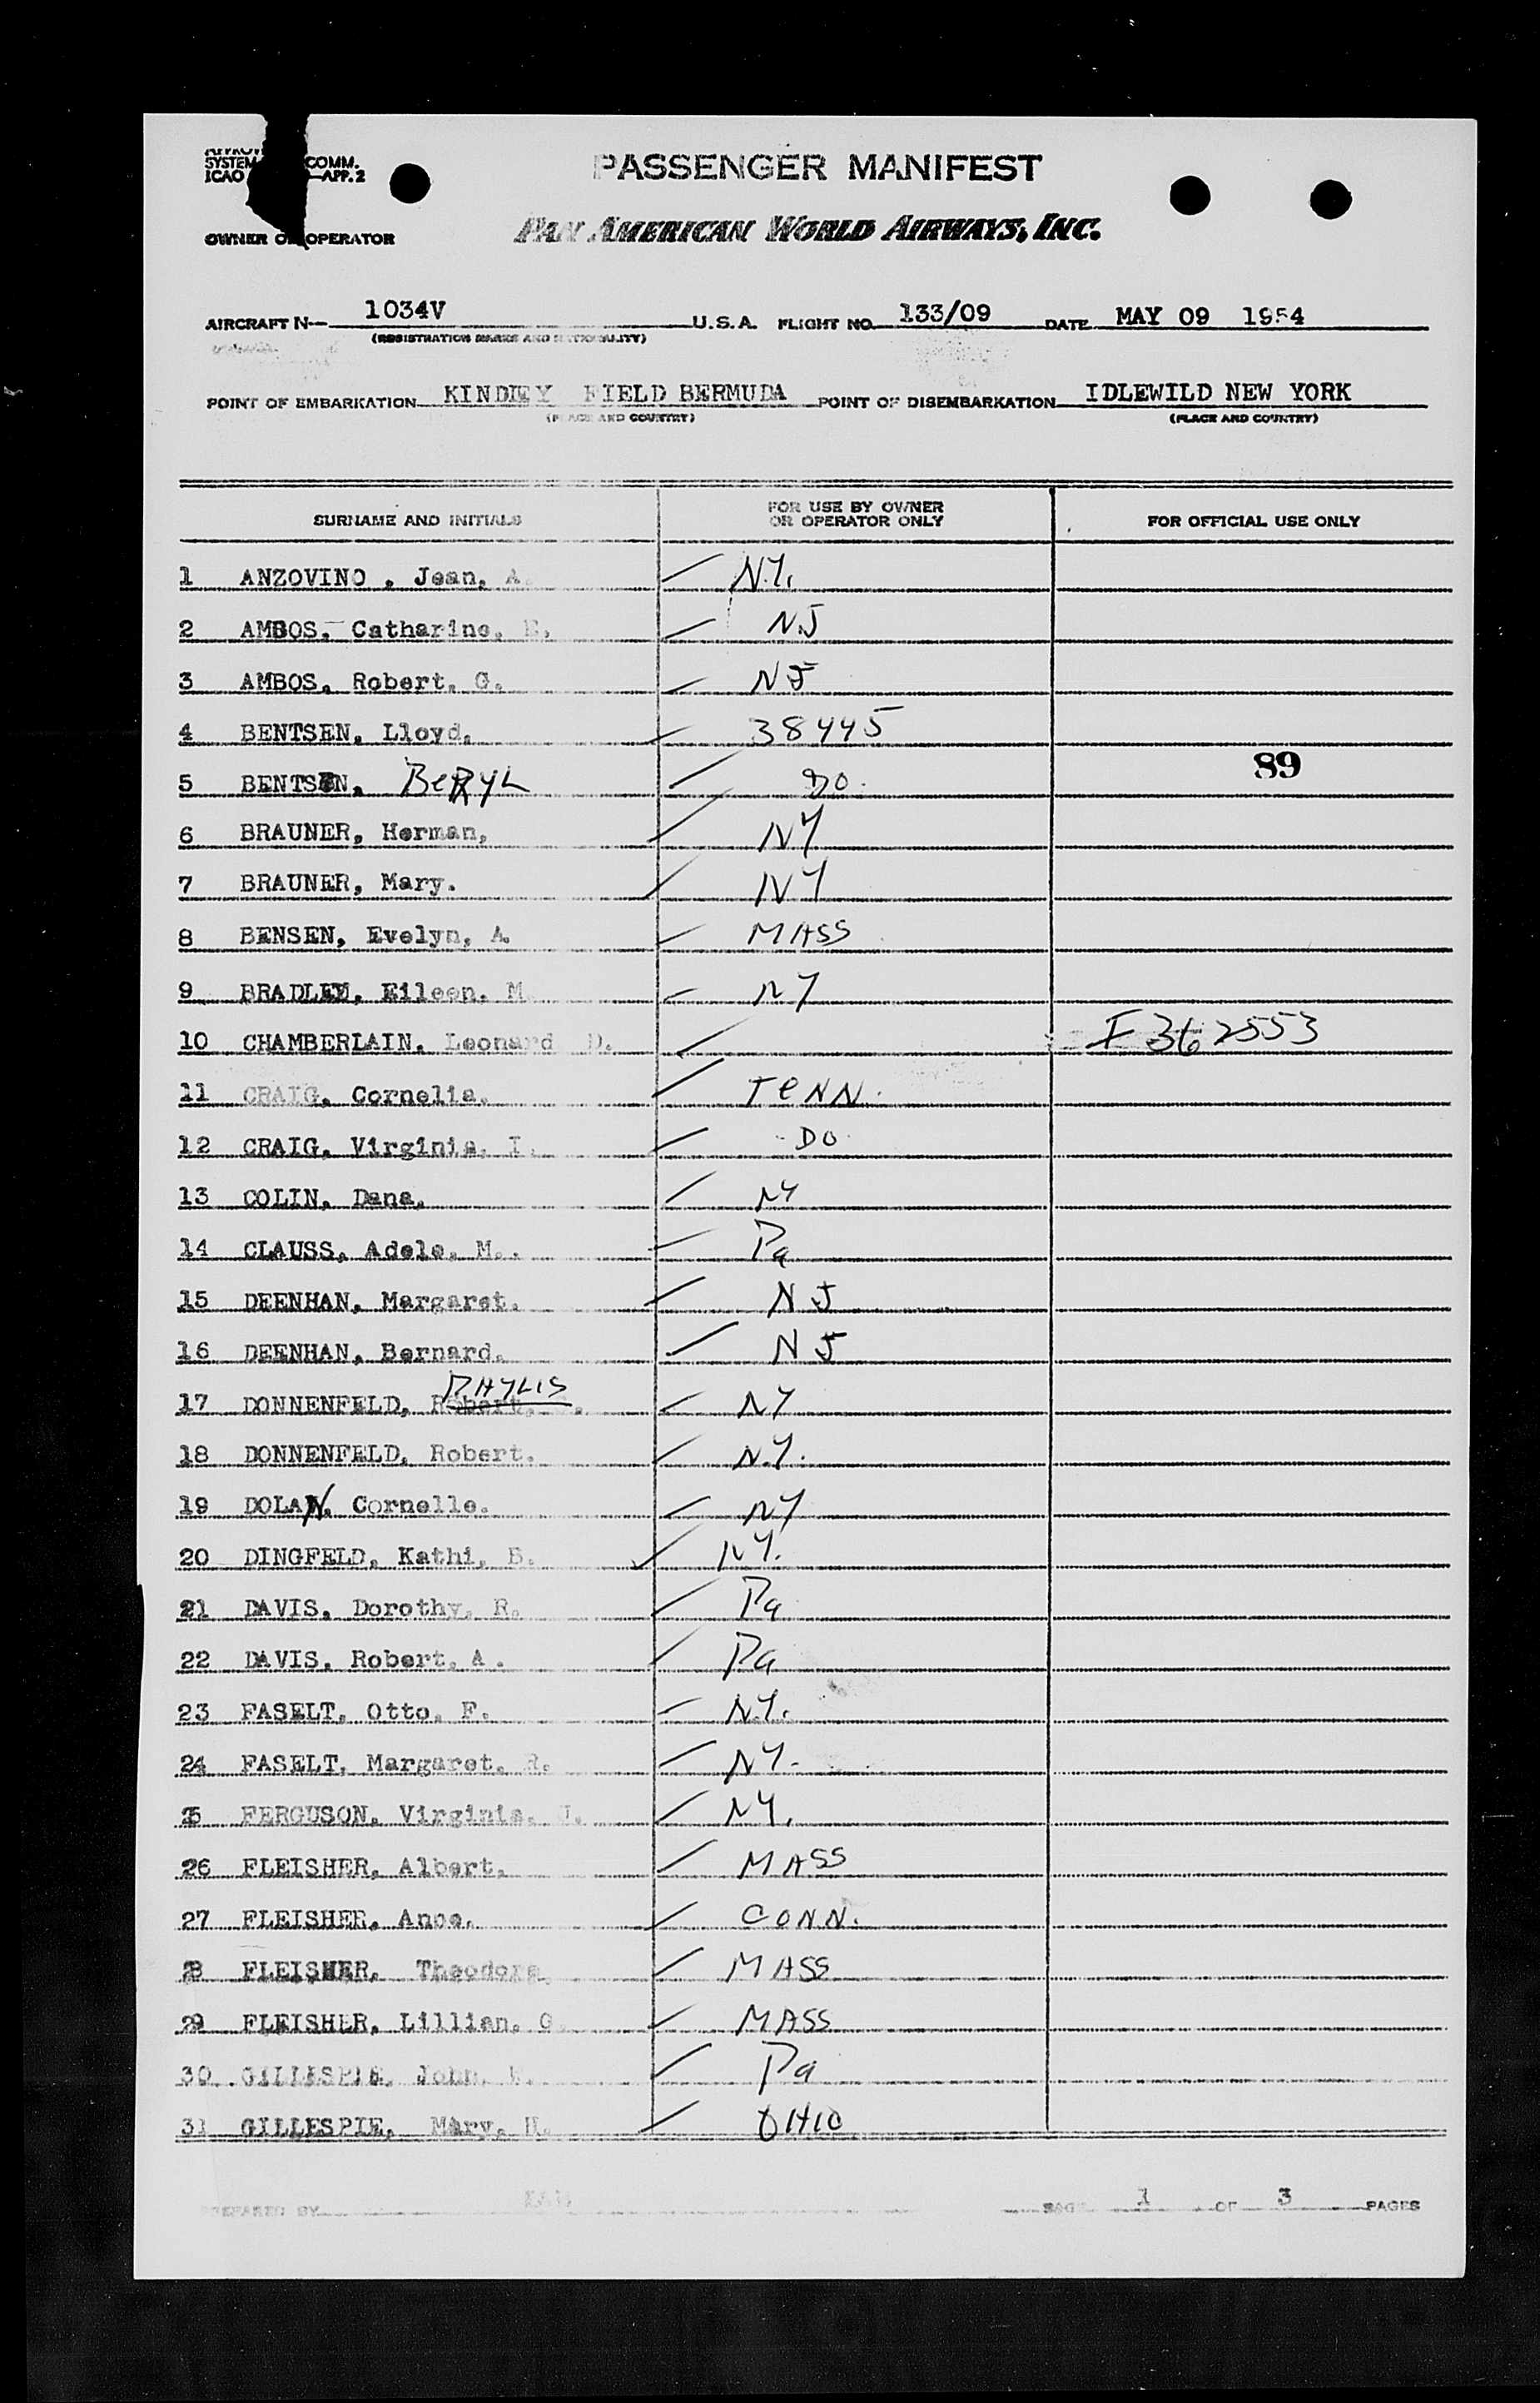 SYSTEM COMM.
ICAO —APP. 2
PASSENGER MANIFEST
OWNER OR OPERATOR
PAN AMERICAN WORLD AIRWAYS, INC.
AIRCRAFT N— 1034V U.S.A. FLIGHT NO. 133/09 DATE MAY 09 1954
(REGISTRATION MARKS AND NATIONALITY)
POINT OF EMBARKATION KINDLEY FIELD BERMUDA POINT OF DISEMBARKATION IDLEWILD NEW YORK
(PLACE AND COUNTRY) (PLACE AND COUNTRY)
SURNAME AND INITIALS FOR USE BY OWNER OR OPERATOR ONLY FOR OFFICIAL USE ONLY
1 ANZOVINO , Jean, A. N.Y.
2 AMBOS, Catharine, E. N.J
3 AMBOS, Robert, G. NJ
4 BENTSEN, Lloyd, 38445
5 BENTSEN, BeRyL DO. 89
6 BRAUNER, Herman, NY
7 BRAUNER, Mary. NY
8 BENSEN, Evelyn, A. MASS
9 BRADLEY, Eileen, M NY
10 CHAMBERLAIN, Leonard D. I 362553
11 CRAIG, Cornelia. TeNN.
12 CRAIG, Virginia, I. DO
13 COLIN, Dana. NY
14 CLAUSS, Adele, M.. Pa
15 DEENHAN, Margaret. NJ
16 DEENHAN, Bernard. NJ
17 DONNENFELD, Robert, PHYLIS NY
18 DONNENFELD, Robert. N.Y.
19 DOLAN, Cornelle. NY
20 DINGFELD, Kathi, B. NY.
21 DAVIS, Dorothy, R. Pa
22 DAVIS, Robert, A. Pa
23 FASELT, Otto, F. N.Y.
24 FASELT, Margaret, R. NY-
25 FERGUSON, Virginia, J. NY.
26 FLEISHER, Albert, MASS
27 FLEISHER, Anne, CONN.
28 FLEISHER, Theodore MASS
29 FLEISHER, Lillian, G. MASS
30 GILLESPIE, John, Pa
31 GILLESPIE, Mary, H. OHIO
PREPARED BY PAGE 1 OF 3 PAGES